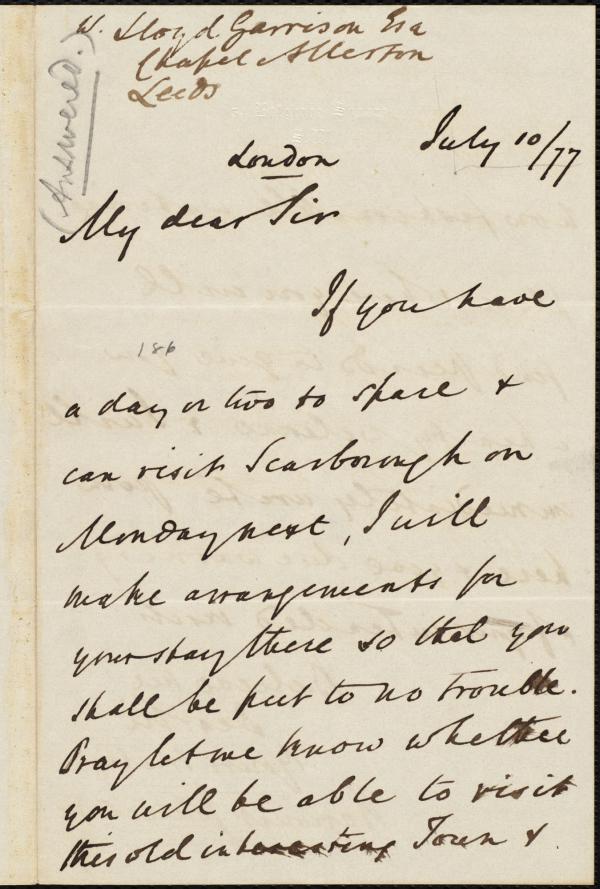 W. Lloyd Garrison Esq
Chapel Allerton
Leeds
(Answered.)
London
July 10/77
My dear Sir
If you have
186
a day or two to spare &
can visit Scarborough on
Monday next, I will
make arrangements for
your stay there so that you
shall be put to no trouble.
Pray let me know whether
you will be able to visit
this old interesting Town &